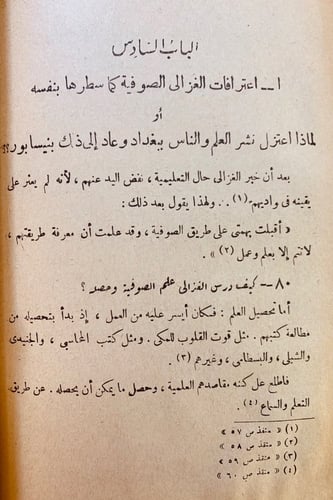 الباب السادس
١ ــ اعترافات الغزالى الصوفية كما سطرها بنفسه
أو
لماذا اعتزل نشر العلم والناس ببغداد وعاد إلى ذلك بنيسابور؟؟
بعد أن خبر الغزالى حال التعليمية ، نفض اليد عنهم ، لأنه لم يعثر على
يقينه فى واديهم (١) . . ولهذا يقول بعد ذلك :
« أقبلت بهمتى على طريق الصوفية ، وقد علمت أن معرفة طريقتهم ،
لاتتم إلا بعلم وعمل (٢) » .
٨٠ ــ كيف درس الغزالى علم الصوفية وحصد ؟
أما تحصيل العلم : فكان أيسر عليه من العمل ، إذ بدأ بتحصيله من
مطالعة كتبهم . . مثل قوت القلوب للمكى . ومثل كتب المحاسبي ، والجنيدى
والشبلى ، والبسطامى ، وغيرهم (٣) .
فاطلع على كنه مقاصدهم العلمية ، وحصل ما يمكن أن يحصله . عن طريق
التعلم والسماع (٤) .
(١) « منقذ ص ٥٧ »
(٢) « منقذ ص ٥٨ »
(٣) « منقذ ص ٥٩ »
(٤) « منقذ ص ٦٠ »